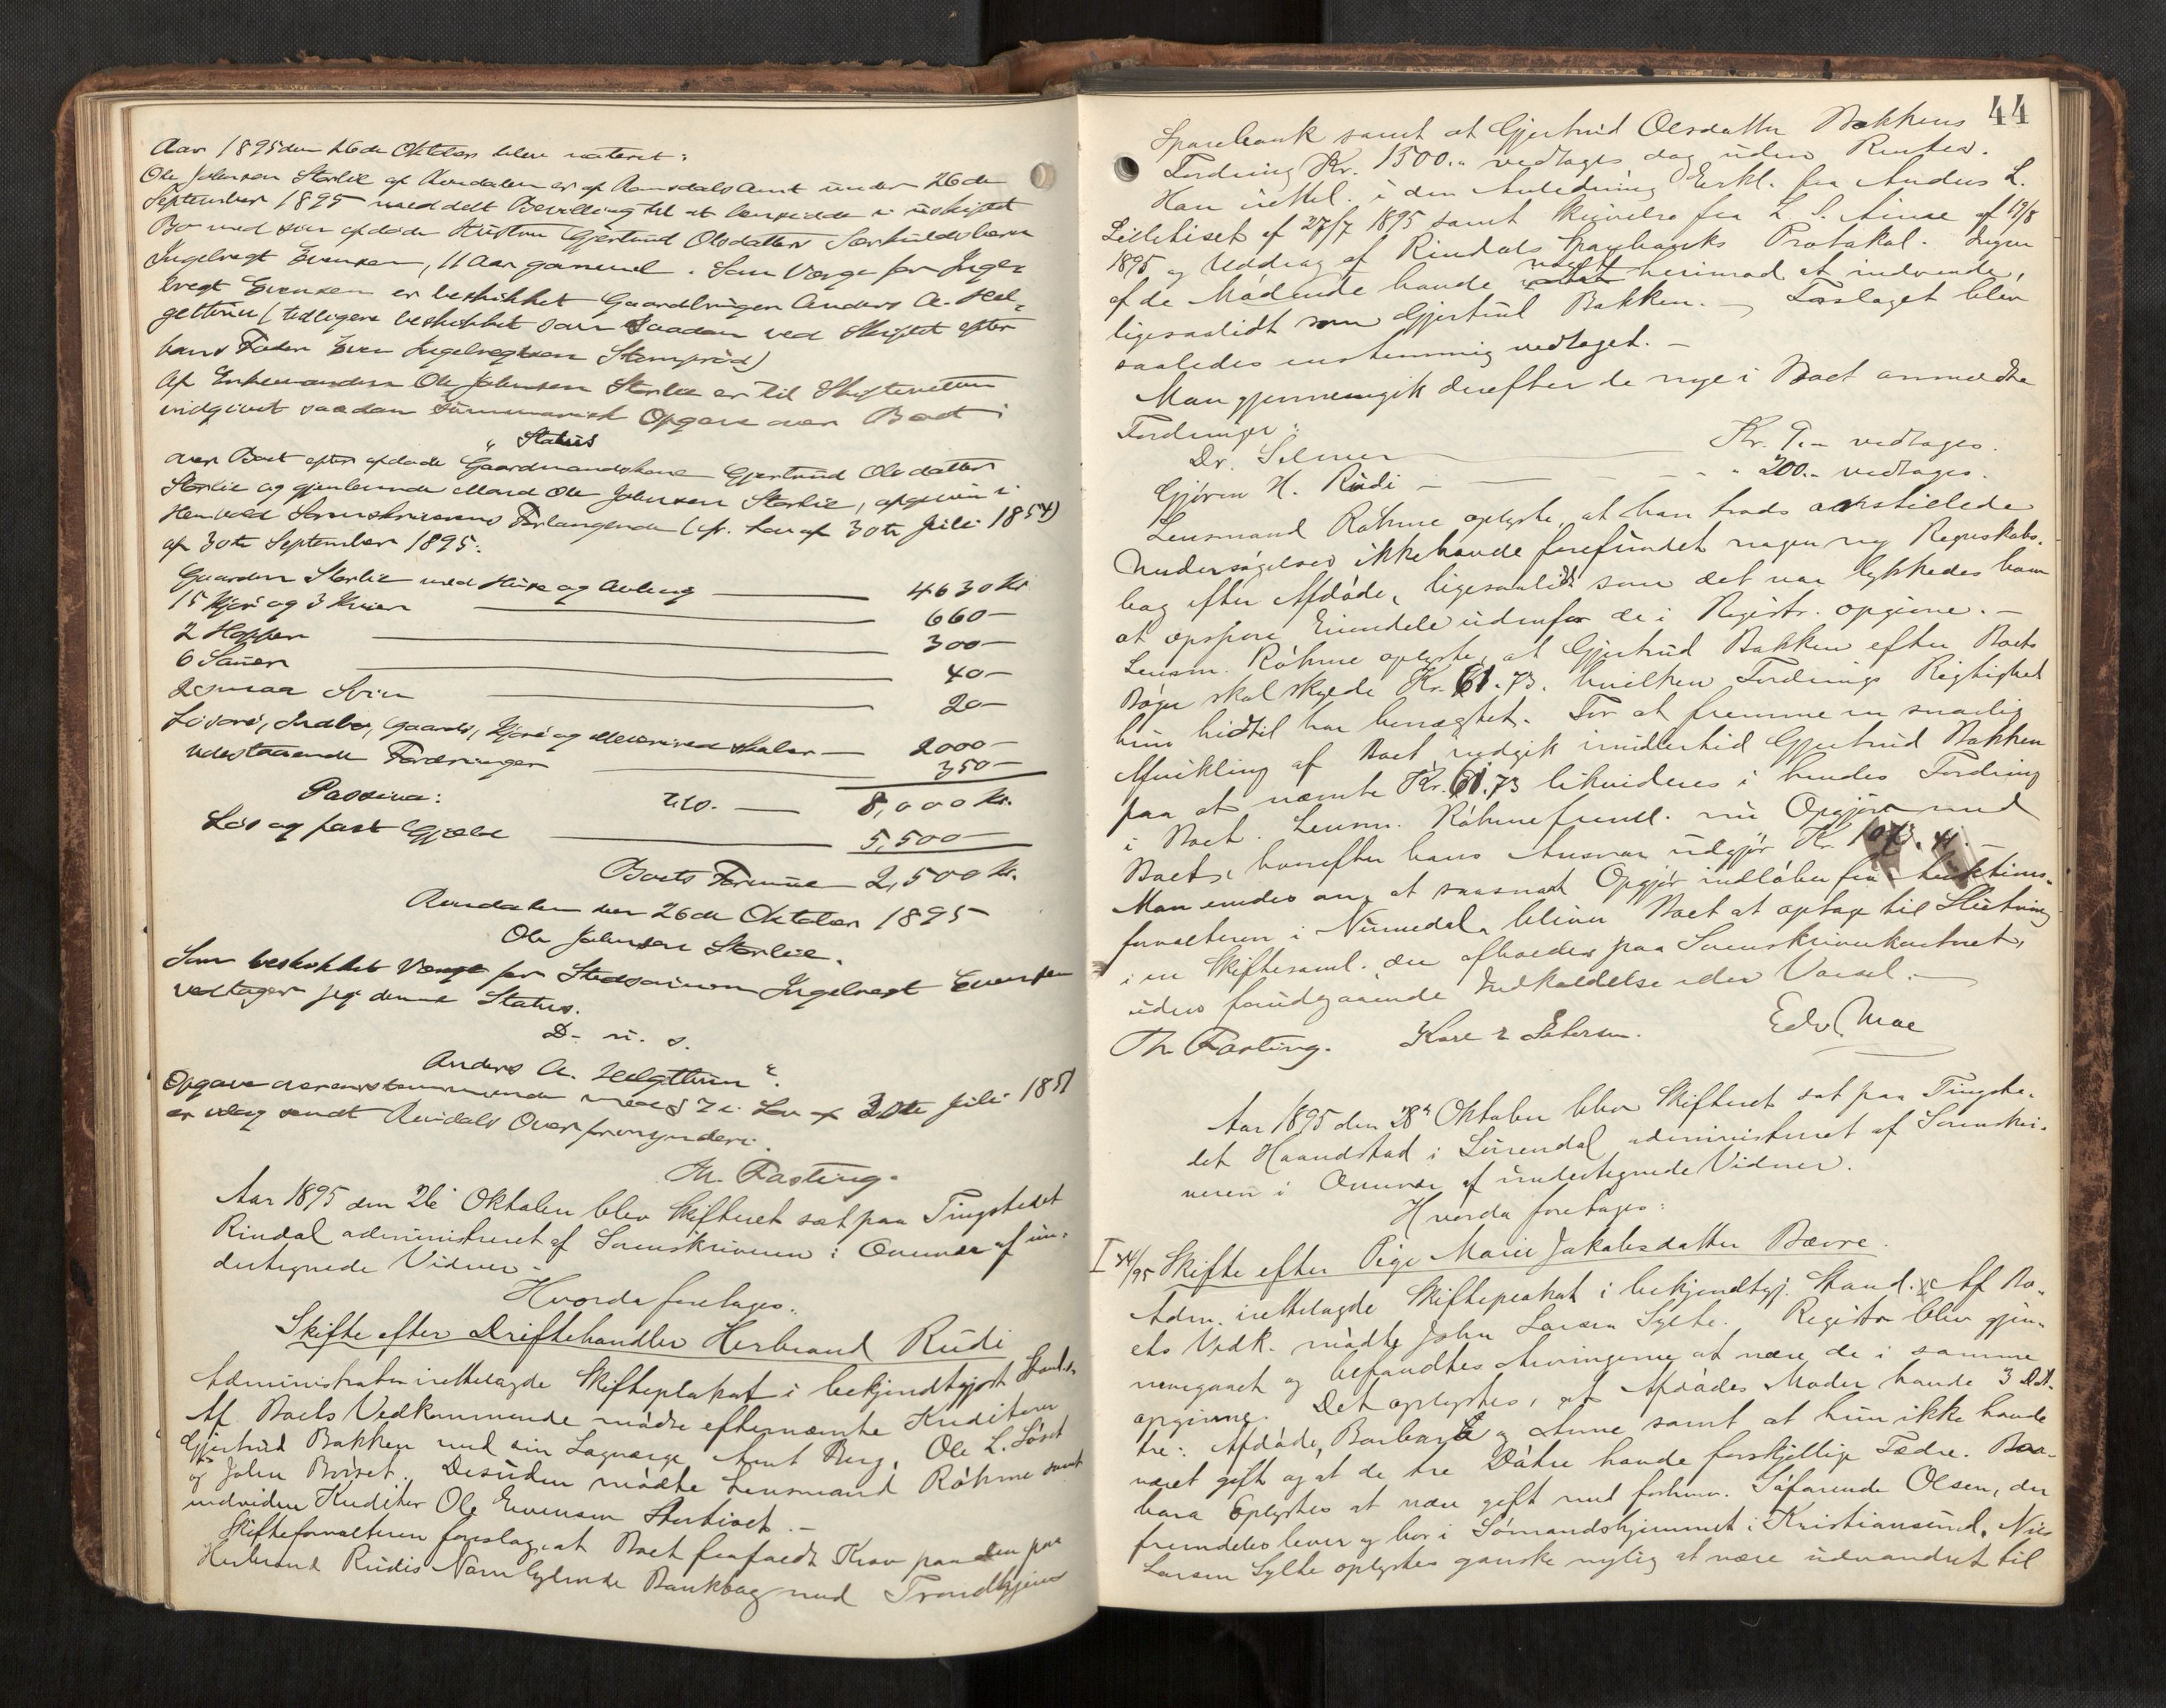 Aar 1895 den 26de Oktober blev noteret:
Ole Johnsen Storlie af Rindalen er af Romsdals Amt under 26de
September 1895 meddelt Bevilling til at hensidde i uskiftet
Bo med sin afdøde Hustru Gjertrud Olsdatters Særkuldsbarn
Ingebregt Evensen, 11 Aar gammel. Som Værge for Inge-
bregt Evensen er beskikket Gaardbruger Anders A. Hel-
getun (tidligere beskikket som Saadan ved Skiftet efter
hans Fader Even Ingebregtsen
Af Enkemanden Ole Johnsen Storlie er til Skifteretten
indgivet saadan summarisk Opgave over Boet:
"Status
over Boet efter afdøde Gaardmandskone Gjertrud Olsdatter
Storlie og gjenlevende Mand Ole Johnsen Storlie, opgiven i
Henhold Sorenskriverens Forlangende (jfr. Lov af 30te Juli 1851)
af 30te September 1895:
Gaarden Storlie med Huse og Avling — 4630 Kr
15 Kjør og 3 Kvier — 660 —
2 Hopper — 300 —
6 Sauer — 40 —
2 smaa Svin — 20 —
Løsøre, Indbo, Gaards, Kjøre og — 2000 —
Udestaaende Fordringer — 350 —
8,000 Kr.
Passiva:
Løs og fast Gjæld — 5,500 —
Boets Formue 2,500 Kr.
Rindalen den 26de Oktober 1895
Ole Johnsen Storlie.
Som beskikket Værge for Stedsønnen Ingebregt Evensen
vedtager jeg denne Status.
D. u. s.
Anders A. Helgetun".
Opgave overensstemmende med § 7 i Lov af 30te Juli 1851
er idag sendt Rindals Overformynderi.
Th. Fasting.
Aar 1895 den 26' Oktober blev Skifteret sat paa Tingstedet
Rindal administreret af Sorenskriveren i Overvær af un-
dertegnede Vidner.
Hvorda foretages:
Skifte efter Driftehandler Herbrand Rudi
Administrator irettelagde Skifteplakat i bekjendtgjort Stand.
Af Boets Vedkommende mødte efternævnte Kreditorer
Gjertrud Bakken med sin Lagværge Arnt Berg, Ole L. Løset
og John Børset. Desuden mødte Lensmand Röhme samt
endvidere Kreditor Ole Evensen
Skifteforvalteren foreslog, at Boet frafaldt Krav paa den paa
Herbrand Rudis Navn lydende Bankbog med Trondhjems
44
Sparebank samt at Gjertrud Olsdatter Bakkens
Fordring Kr. 1500.- vedtages dog uden Renter.
Han irettel. i den Anledning Erkl. fra Anders L.
Lillehiset af 27/7 1895 samt Skrivelse fra L. S. af 19/8
1895 og Uddrag af Rindals Sparebanks Protokol. Ingen
af de Mødende havde noget herimod at indvende,
ligesaalidt som Gjertrud Bakken. — Forslaget blev
saaledes enstemmig vedtaget. —
Man gjennemgik derefter de nye i Boet anmeldte
Fordringer:
Dr. Selmer — Kr. 9.- vedtages.
Gjøren H. Rudi — " 200.- vedtages.
Lensmand Röhme oplyste, at han trods anstillede
Undersøgelser ikke havde forefundet nogen ny Regnskabs-
bog efter Afdøde, ligesaalidt som det var lykkedes ham
at opspore Eiendele udenfor de i Registr. opgivne. —
Lensm. Röhme oplyste, at Gjertrud Bakken efter Boets
Bøger skal skylde Kr. 61.73, hvilken Fordrings Rigtighed
hun hidtil har benægtet. For at fremme en snarlig
Afvikling af Boet indgik imidlertid Gjertrud Bakken
paa at nævnte Kr. 61.73 likvideres i hendes Fordring
i Boet. Lensm. Röhme freml. nu Opgjør med
Boet, hvorefter hans Ansvar udgjør Kr.
Man enedes om, at saasnart Opgjør indløber fra Auktions-
forvalteren i Numedal, bliver Boet at optage til Slutning
i en Skiftesaml. der afholdes paa Sorenskriverkontoret,
uden forudgaaende Indkaldelse eller Varsel. —
Th. Fasting. Karl Petersen. Edv. Moe
Aar 1895 den 28' Oktober blev Skifteret sat paa Tingste-
det Haandstad i Surendal administreret af Sorenskri-
veren i Overvær af undertegnede Vidner.
Hvorda foretages:
I 14/95 Skifte efter Pige Marit Jakobsdatter Bævre.
Adm. irettelagde Skifteplakat i bekjendtgj. Stand. Af Bo-
ets Vedk. mødte John Larsen Sylte. Registr. blev gjen-
nemgaaet og befandtes Arvingerne at være de i samme
opgivne. Det oplystes, at Afdødes Moder havde 3 Døt-
tre: Afdøde, Barbara og Anne samt at hun ikke havde
været gift og at de tre Døtre havde forskjellige Fædre. Bar-
bara oplystes at være gift med forhenv. Søfarende Olsen, der
fremdeles lever og bor i Sømandshjemmet i Kristiansund. Nils
Larsen Sylte oplystes ganske nylig at være udvandret til